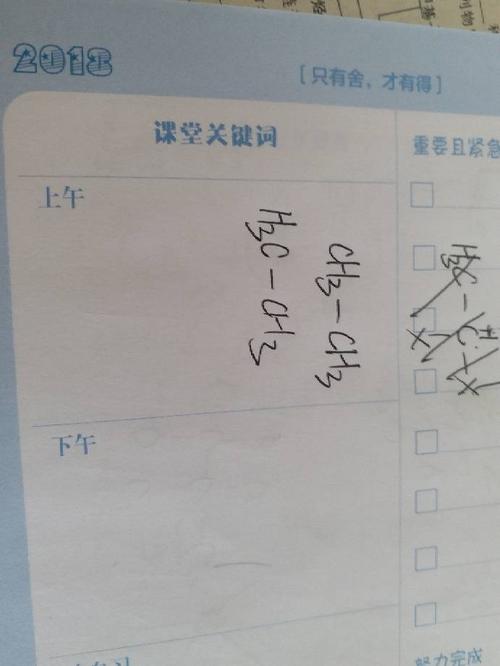 2018
[只有舍，才有得]
课堂关键词
重要且紧急
上午
CH3-CH3
H3C-CH3
下午
努力完成